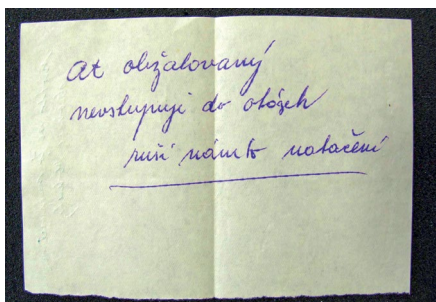 ať obžalovaný
nevstupuje do otázek
ruší nám to natáčení